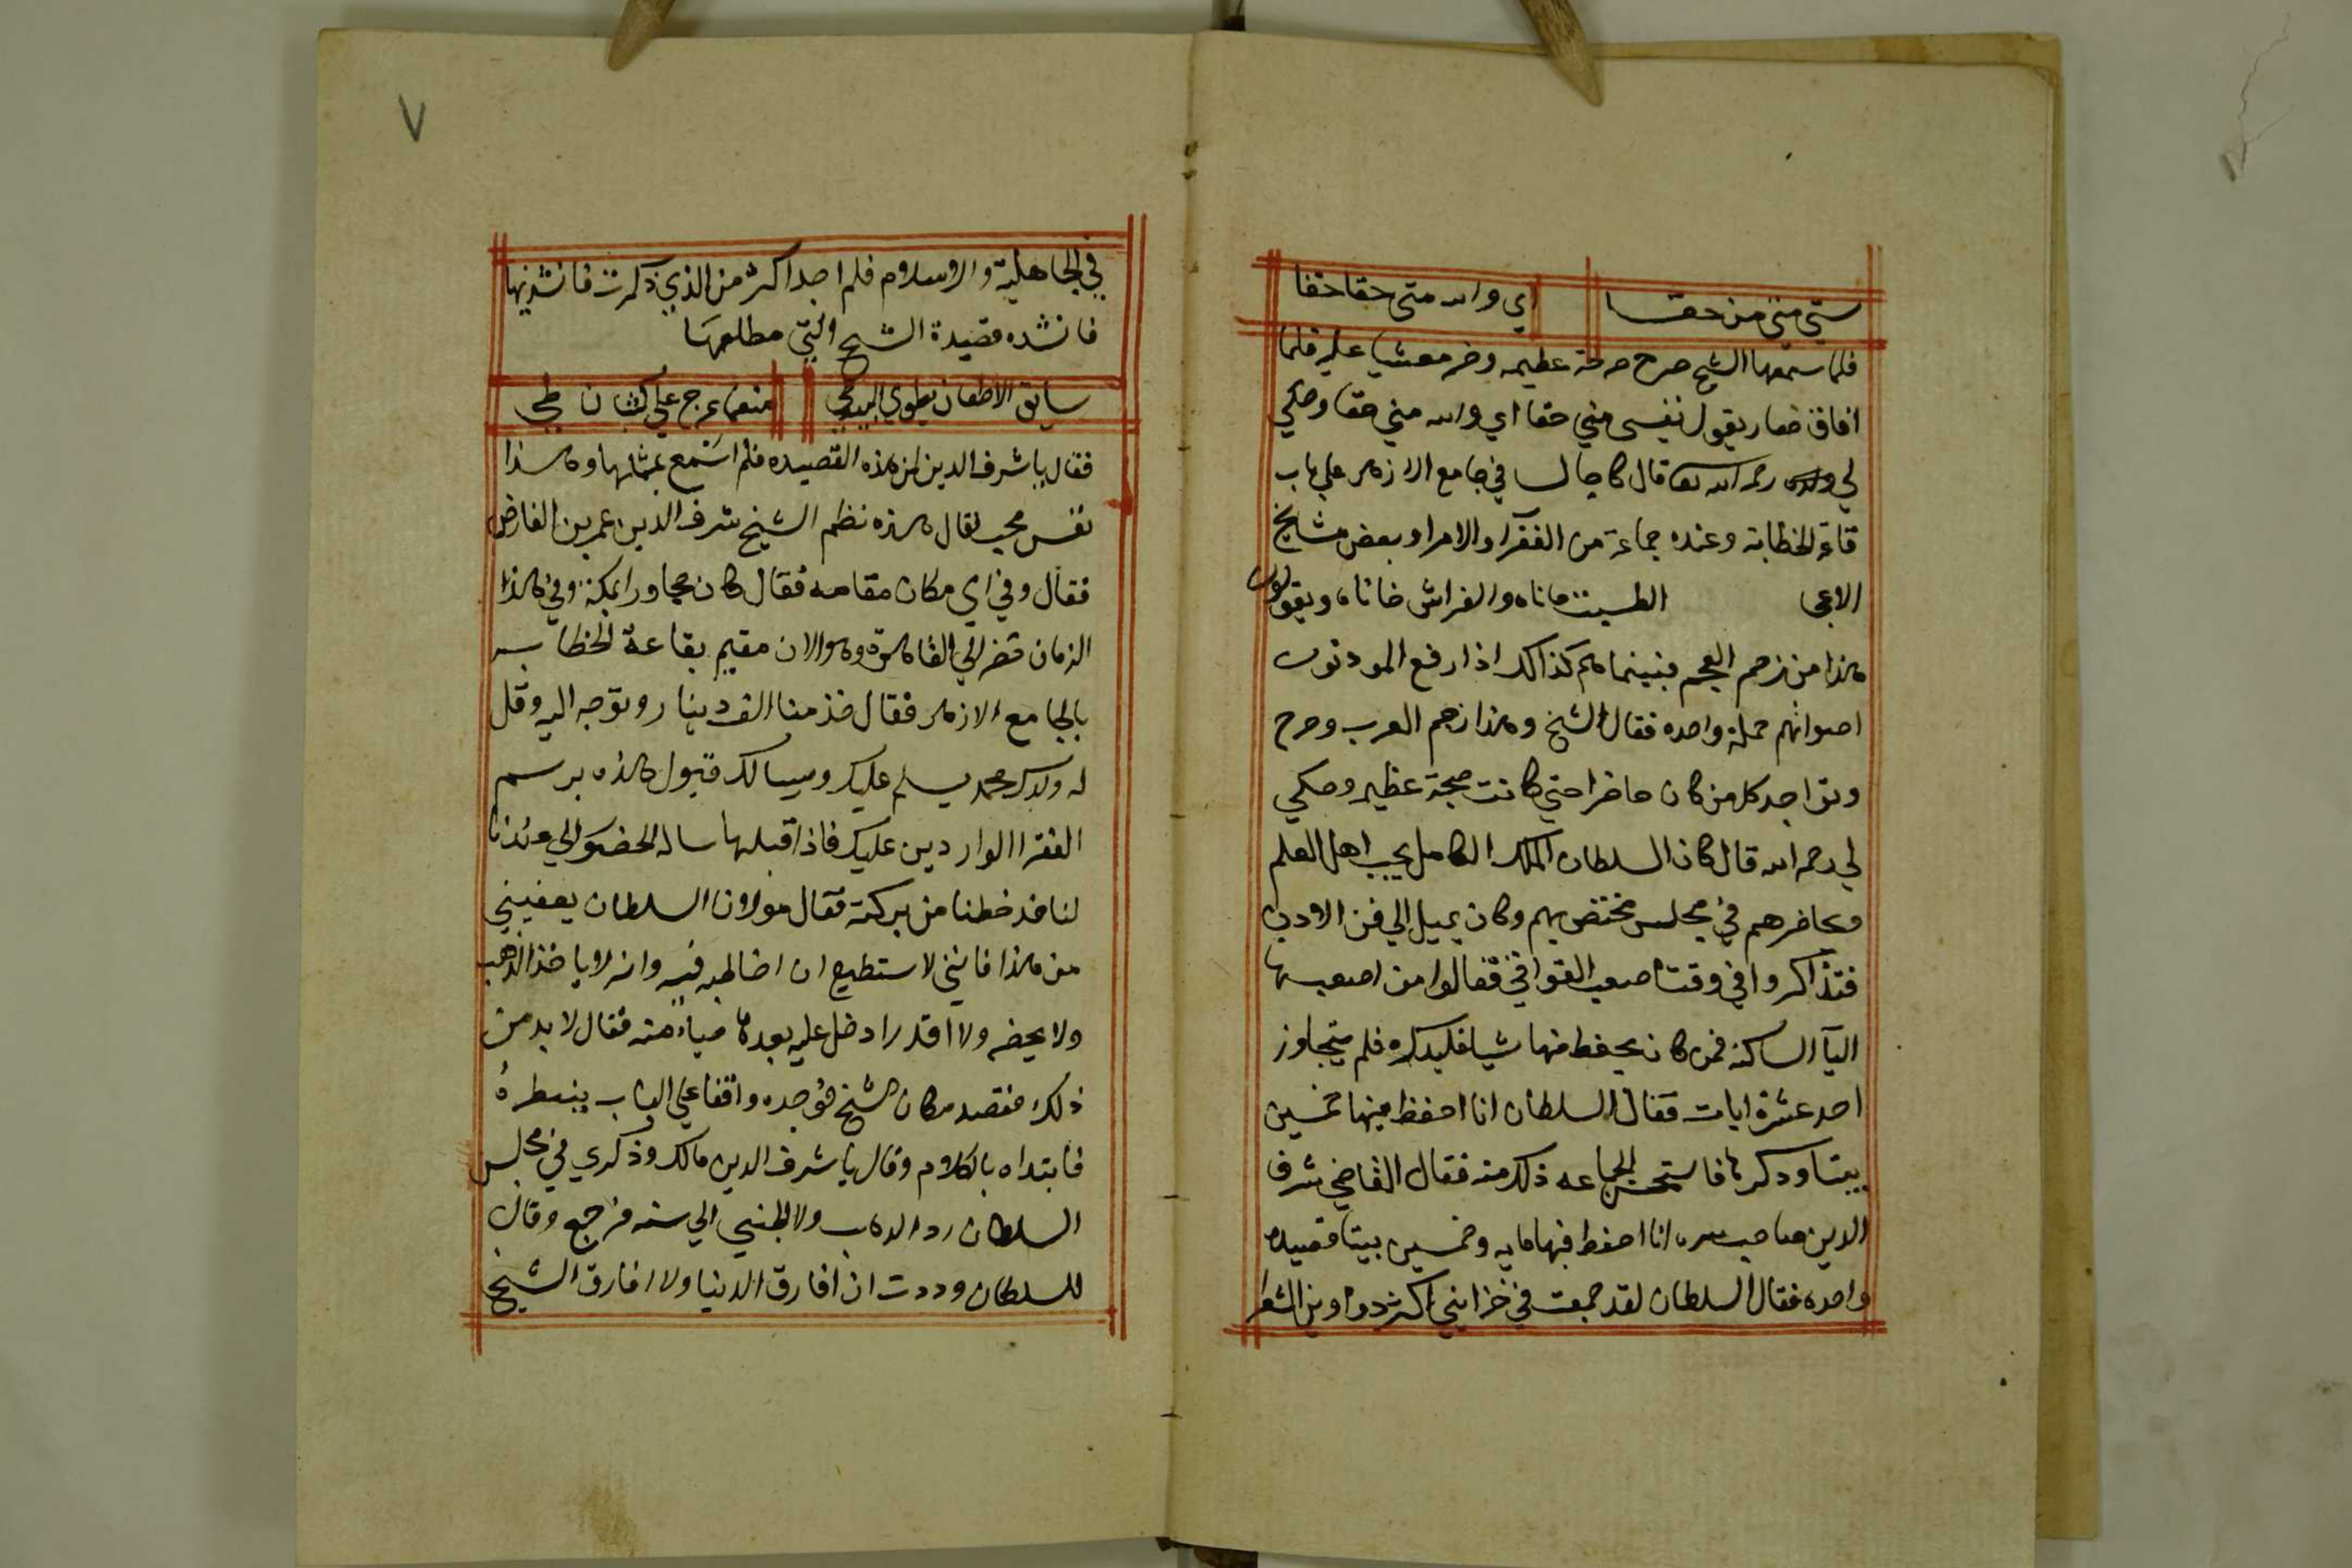 ستي متي من حقا اي والله متى حقا حقا
فلما سمعها الشيخ صرخ صرخة عظيمه وخر مغشيا عليه فلما
افاق فصار يقول نفسي متي حقا اي والله متي حقا وحكي
لي ولده رحمه الله تعا قال كا جالسا في جامع الازهر علي باب
قاعة الخطابة وعنده جماعة من الفقرآ والامرا وبعض مشايخ
الاعجا الطست ماناه والفراش خاناه ويقولون
هذا من زحم العجم فبينما هم كذالك اذا رفع المودنون
اصواتهم جملة واحده فقال الشيخ وهذا زحم العرب وصرح
وتواجد كل من كان حاضرا حتي كانت ضجة عظيمه وحكي
لي رحمه الله قال كان السلطان الملك الكامل يحب اهل العلم
ومحاضرهم في مجلس مختص بهم وكان يميل الي فن الادب
فتذاكروا في وقت اصعب القوافي فقالوا من اصعبها
اليآ الساكنه فمن كان يحفظ منها شيا فليذكره فلم يتجاوز
احد عشرة ابيات فقال السلطان انا احفظ منها خمسين
بيتا وذكرها فاستحسن الجماعه ذلك منه فقال القاضي شرف
الدين صاحب سره انا احفظ فيها مايه وخمسين بيتا قصيده
واحده فقال السلطان لقد جمعت في خزايني اكثر دواوين الشعر
٧
في الجاهلية والاسلام فلم اجد اكثر من الذي ذكرت فانشدنيها
فانشده قصيدة الشيخ التي مطلعها
سايق الاظعان يطوي البيد طي منعما عرج علي كثبان طي
فقال يا شرف الدين لمن هذه القصيده فلم اسمع بمثلها وهذا
نفس محب فقال هذه نظم الشيخ شرف الدين عمر بن الفارض
فقال وفي اي مكان مقامه فقال كان مجاورا بمكة وفي هذا
الزمان حضر الي القاهرة وهو الان مقيم بقاعة الخطابه
بالجامع الازهر فقال خذ منا الف دينار وتوجه اليه وقل
له ولدك محمد يسلم عليك ويسالك قبول هذه برسم
الفقرا الواردين عليك فاذا قبلها ساله الحضور الي عندنا
لناخذ حظنا من بركته فقال مولانا السلطان يعفيني
من هذا فانني لا استطيع ان اخاطبه فيه وانه لا ياخذ الذهب
ولا يحضر ولا اقدر ادخل عليه بعدها حياء منه فقال لا بد من
ذلك فقصد مكان الشيخ فوجده واقفا علي الباب ينتظره
فابتداه بالكلام وقال يا شرف الدين مالك وذكري في مجلس
السلطان رد الذهب ولا تجني الي سنه فرجع وقال
للسلطان وددت ان افارق الدنيا ولا افارق الشيخ